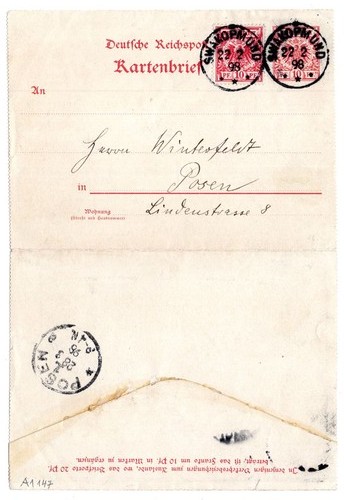 Deutsche Reichspost
Kartenbrief
SWAKOPMUND
22 2
98
SWAKOPMUND
22 2
98
10
10
An
Herrn Winterfeldt
in Posen
Wohnung
(Straße und Hausnummer)
Lindenstrasse 8
POSEN
98
In denjenigen Verkehrsbeziehungen zum Auslande, wo das Briefporto 20 Pf.
beträgt, ist das Franko um 10 Pf. in Marken zu ergänzen.
A1147